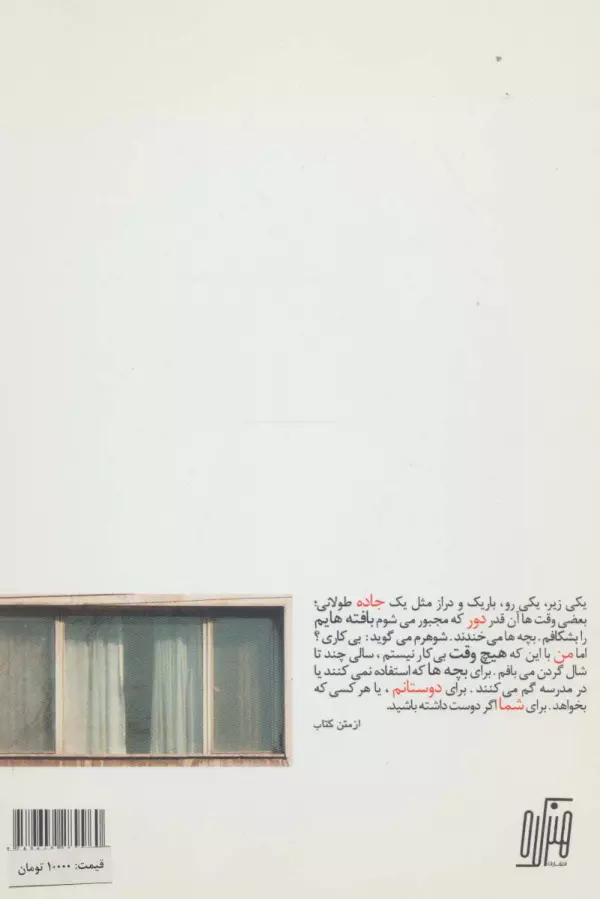 یکی زیر، یکی رو، باریک و دراز مثل یک جاده طولانی؛
بعضی وقت ها آن قدر دور که مجبور می شوم بافته هایم
را بشکافم. بچه ها می خندند. شوهرم می گوید: بی کاری؟
اما من با این که هیچ وقت بی کار نیستم، سالی چند تا
شال گردن می بافم. برای بچه ها که استفاده نمی کنند یا
در مدرسه گم می کنند. برای دوستانم، یا هر کسی که
بخواهد. برای شما اگر دوست داشته باشید.
از متن کتاب
قیمت: ۱۰۰۰۰ تومان